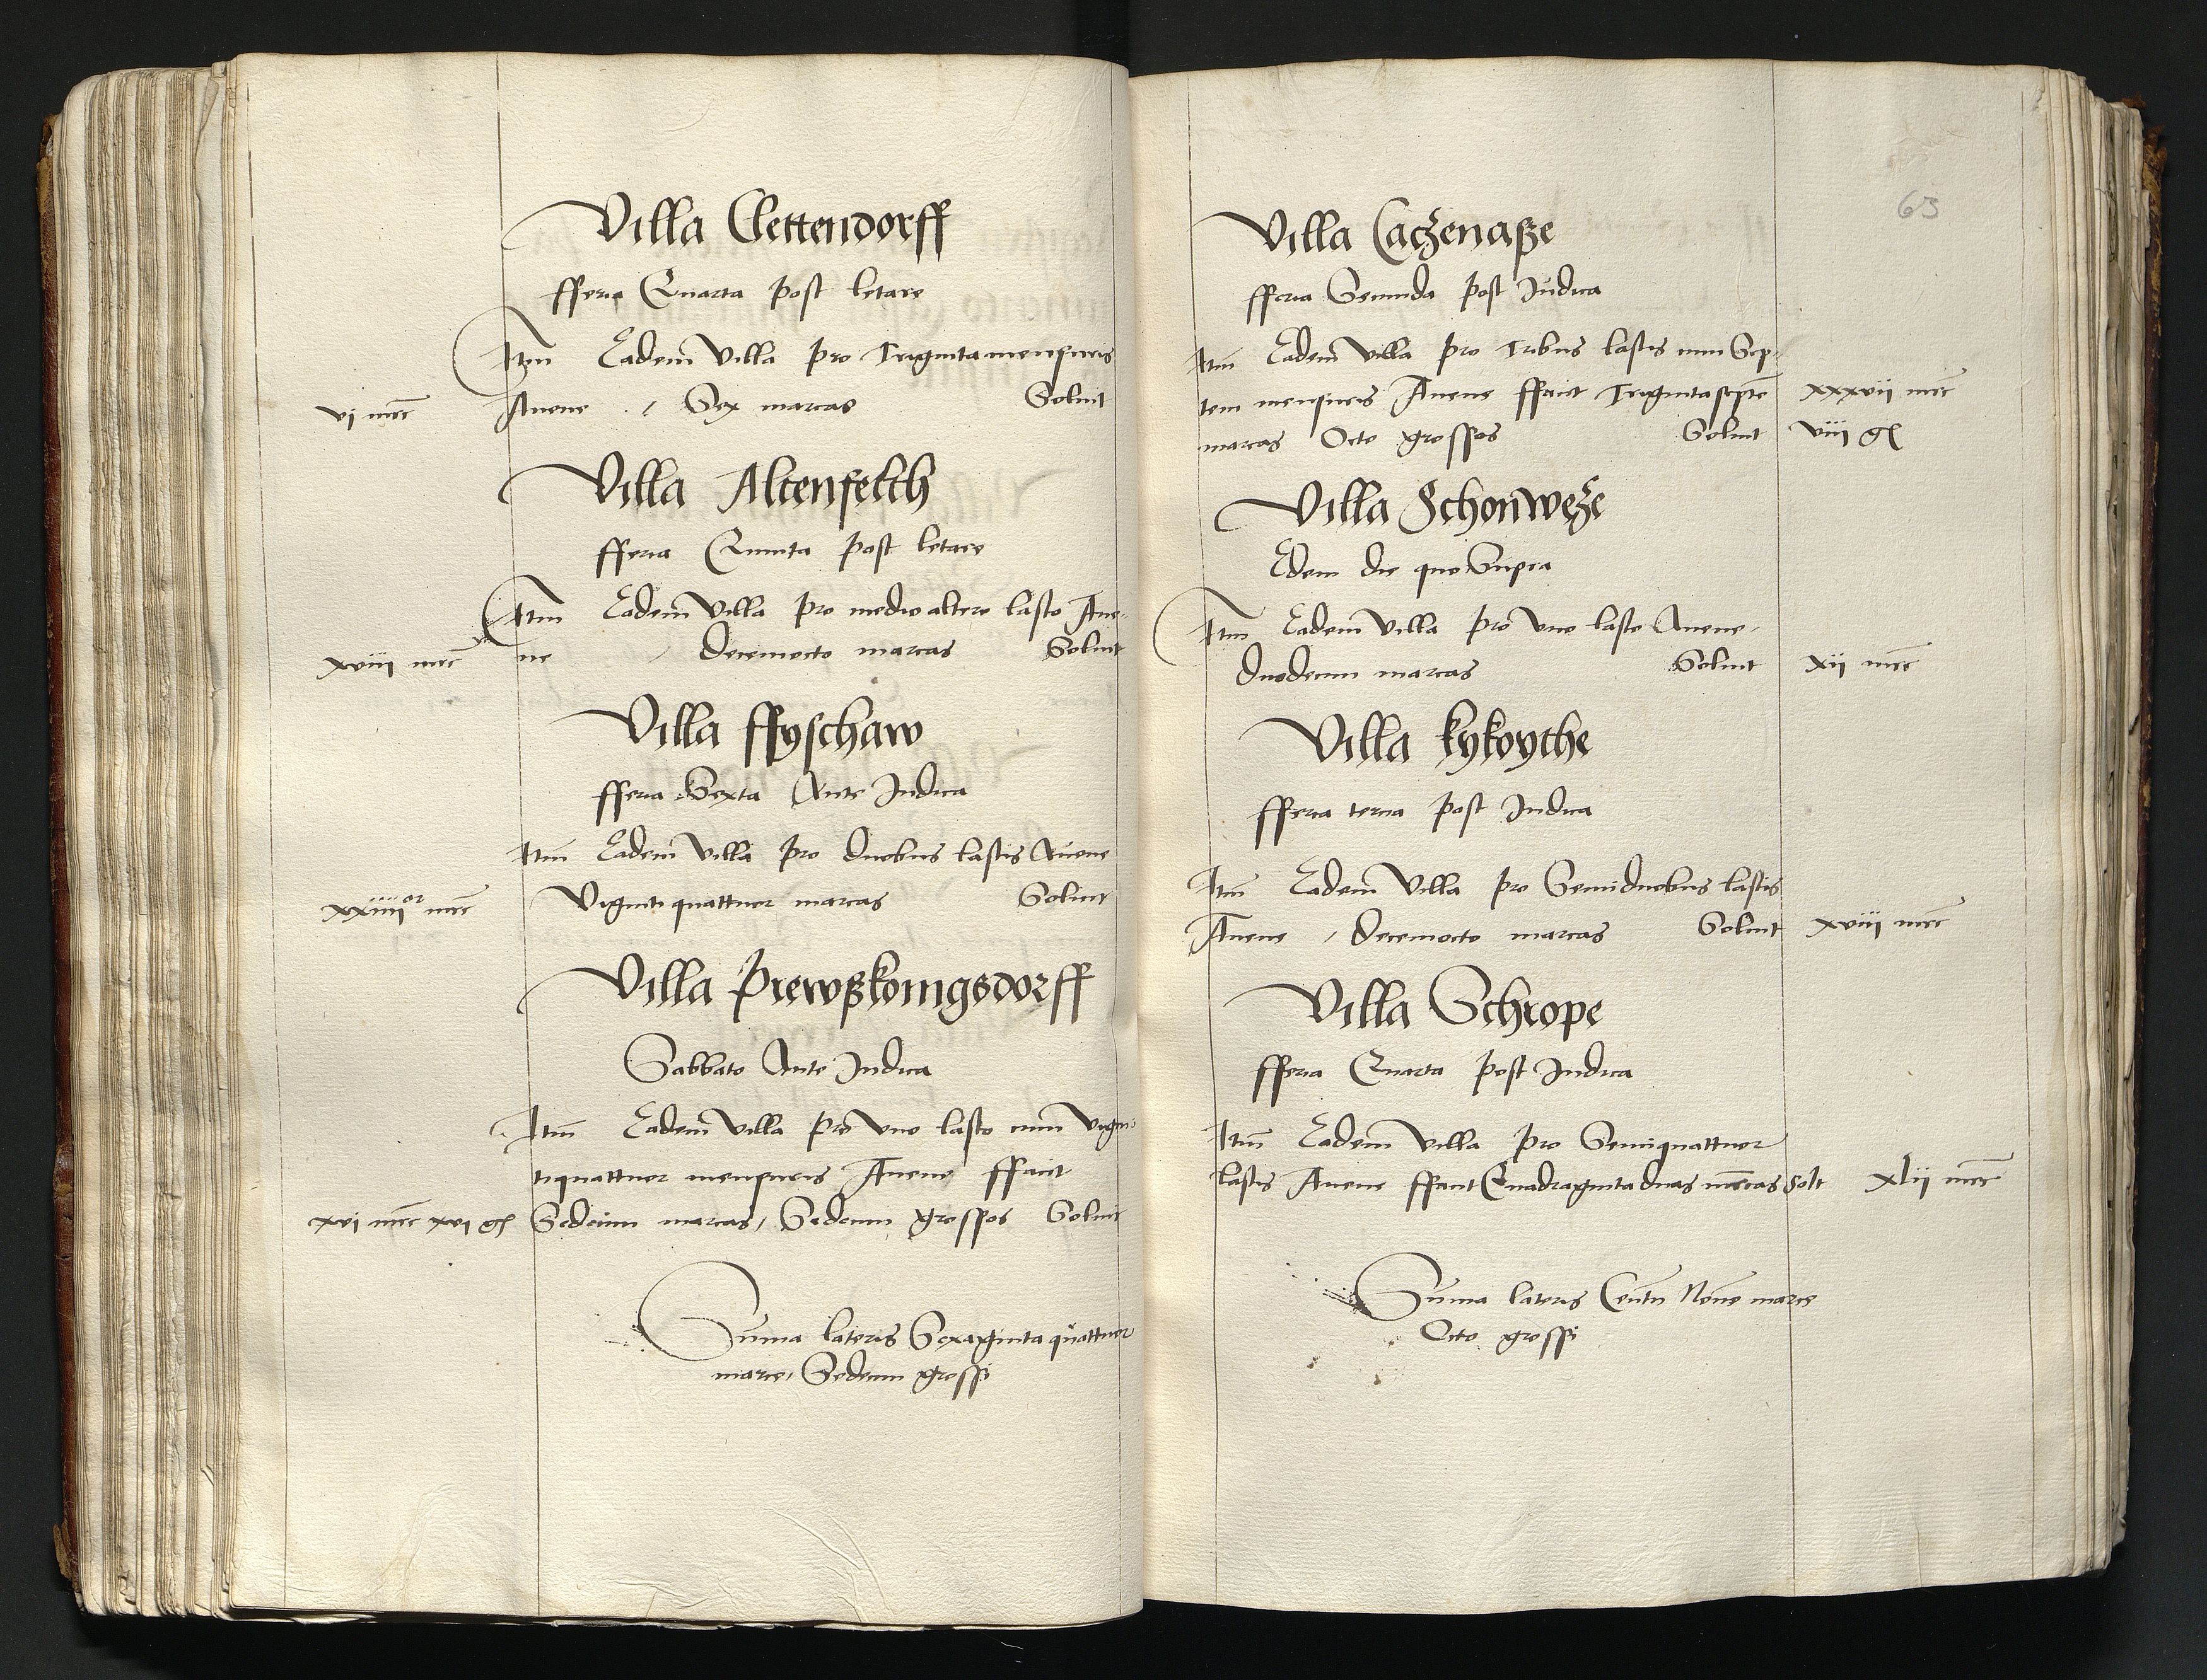 Villa Clettendorff
fferia Quarta post letare
Itm Eadem Villa pro Trigintamensuris
vi mrc Auene . / Sex marcas Soluit
Villa Altenfelth
fferia Quinta post letare
Itm Eadem Villa pro medio altero lasto Aue-
xviii mrc ne / Decemocto marcas Soluit
Villa ffyschaw
fferia Sexta Ante Judica
Itm Eadem Villa pro duobus lastis Auene
xxiiiior mrc Viginti quattuor marcas Soluit
Villa Prewskonigsdorff
Sabbato Ante Judica
Itm Eadem Villa pro vno lasto cum vigin-
tiquattuor mensuris Auene ffacit
xvi mrc xvi gl Sedecim marcas / Sedecim grossos Soluit
Suma lateris Sexaginta quattuor
marce / Sedecim grossi
63
Villa Caczenasze
fferia Secunda post Judica
Itm Eadem Villa pro Tribus lastis cum Sep-
tem mensuris Auene ffacit Trigintasepte xxxvii mrc
marcas Octo grossos Soluit viii gl
Villa Schonweze
Edem die quo Supra
Itm Eadem Villa pro vno lasto Auene
duodecim marcas Soluit xii mrc
Villa kykoythe
fferia tercia post Judica
Itm Eadem Villa pro Semiduobus lastis
Auene / Decemocto marcas Soluit xviii mrc
Villa Schrope
fferia Quarta post Judica
Itm Eadem Villa pro Semiquattuor
lastis Auene ffacit Quadragintaduas marcas Solt xlii mrc
Suma lateris Centu Nouē marce
Octo grossi